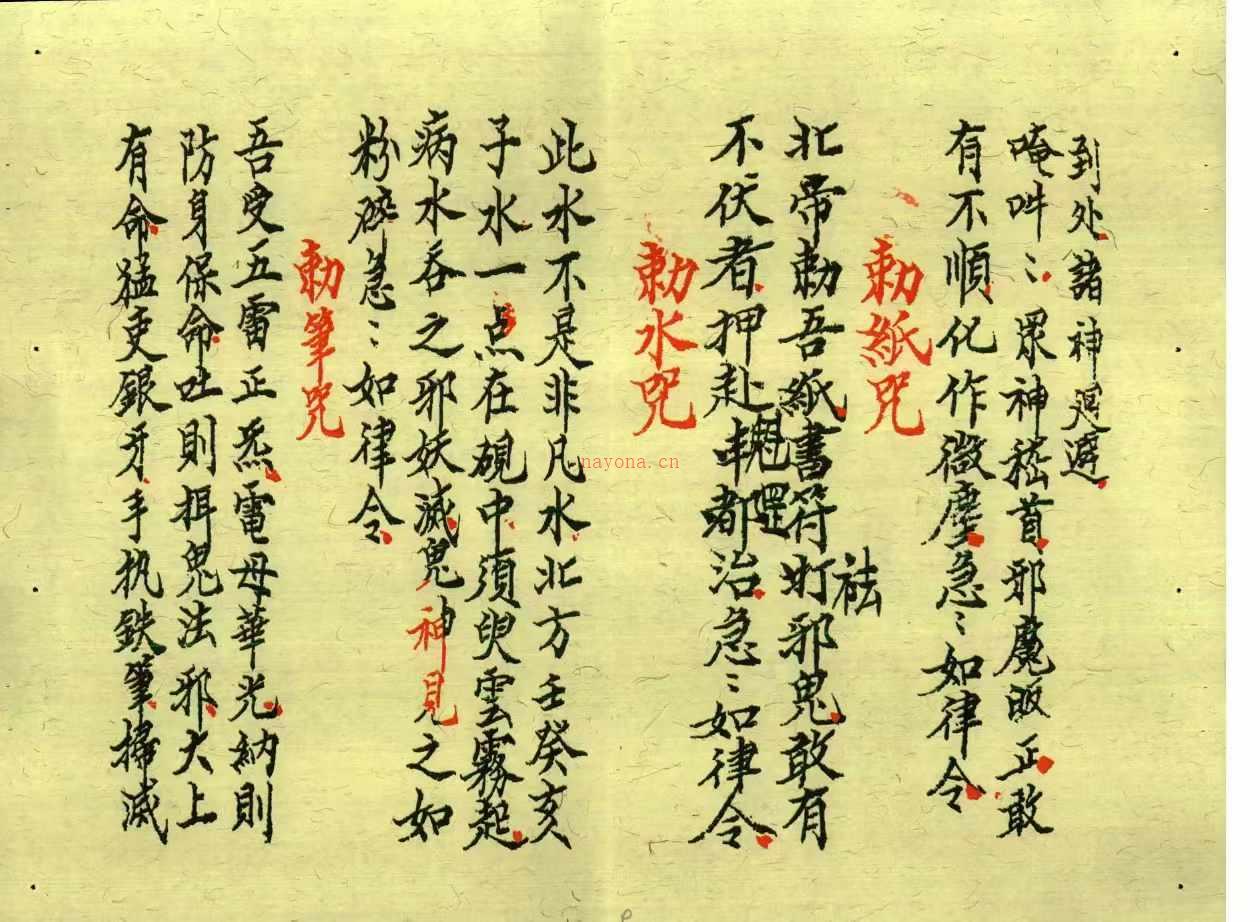 到处諸神迴避
唵吽〻眾神嵇首邪魔皈正敢
有不順化作微塵急〻如律令
勅紙咒
北帝勅吾紙書符打邪鬼敢有
袪
不伏者押赴丰都治急〻如律令
魁罡
勅水咒
此水不是非凡水北方壬癸亥
子水一点在硯中須臾雲霧起
病水吞之邪妖滅鬼神見之如
粉碎急〻如律令
勅筆咒
吾受五雷正炁電母華光納則
防身保命吐則鬼法邪大上
有命猛吏銀牙手执鉄筆掃滅
nayona.cn